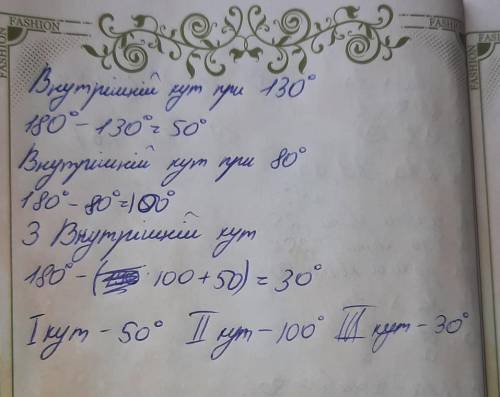 FASHION FASHION FASHION FASHION
Внутрішній кут при 130°
180° - 130° = 50°
Внутрішній кут при 80°
180° - 80° = 100°
3 Внутрішній кут
180° - ( 100 + 50) = 30°
I кут - 50° II кут - 100° III кут - 30°